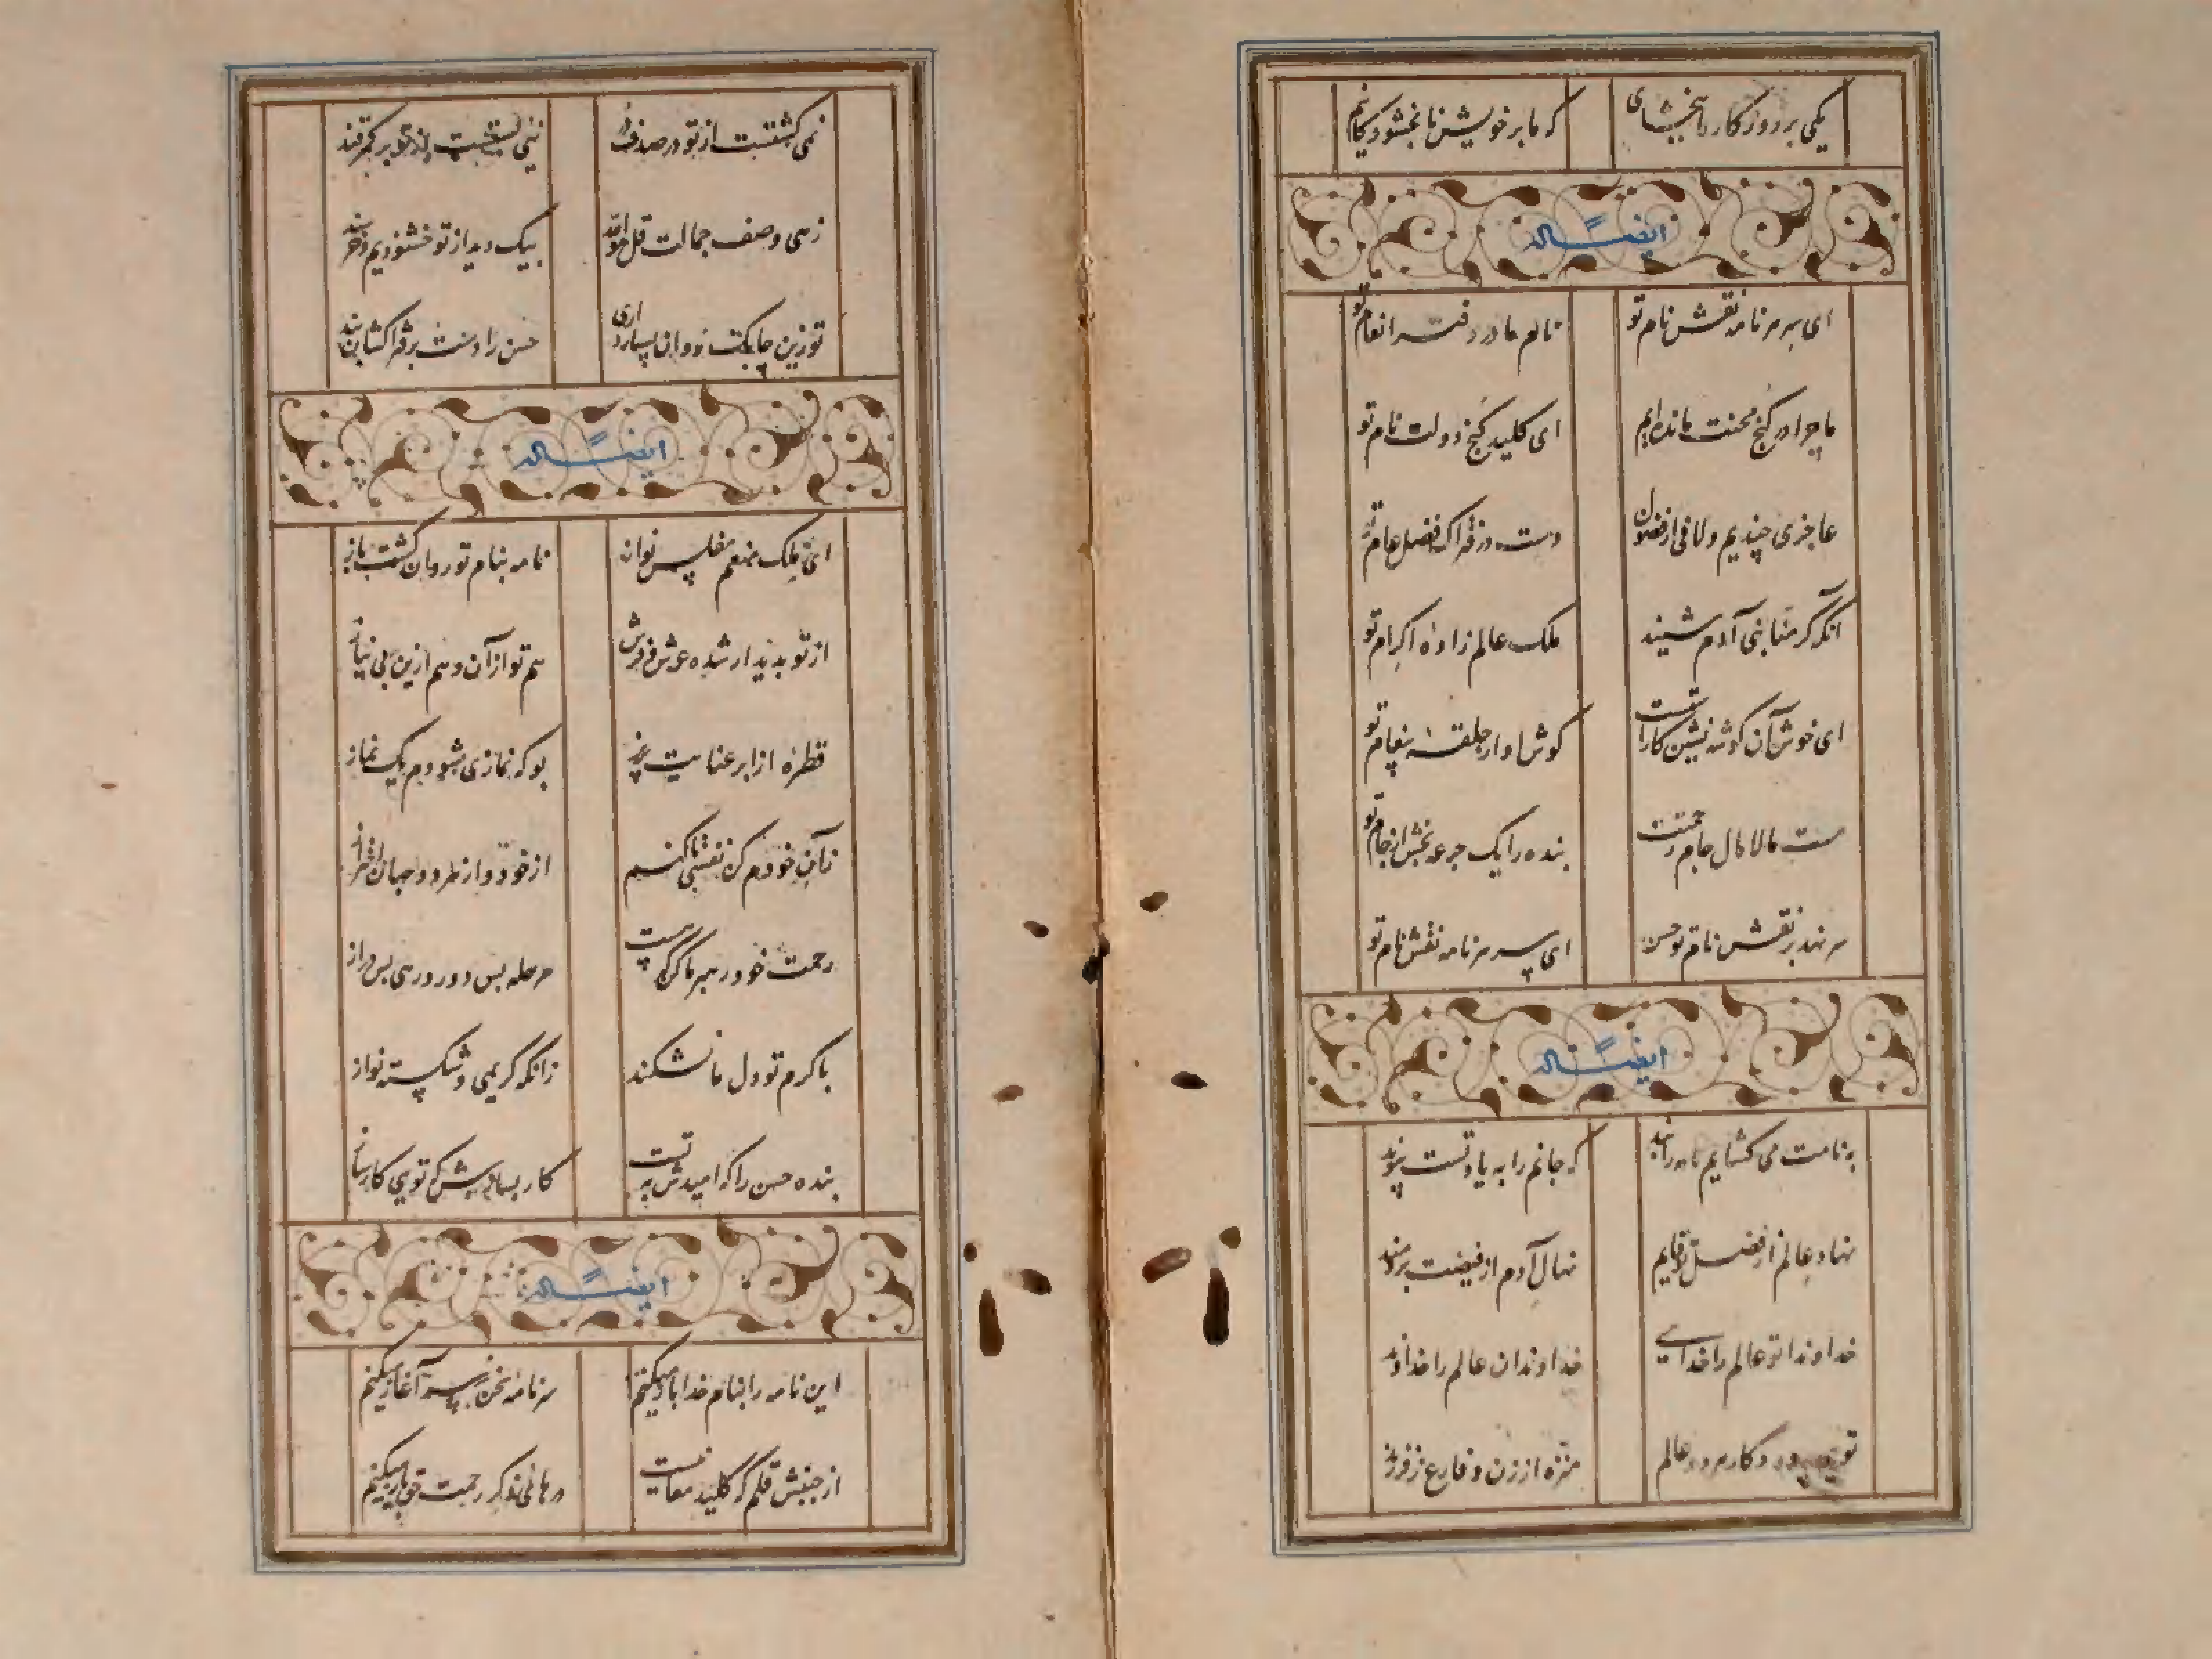 یکی بر روزگار ما ببخشای که ما بر خویشتن نابخشودگانیم
ایضا له
ای سر هر نامه نقش نام تو نام ما در دفتر انعام تو
ما چرا در کنج محنت مانده ایم ای کلید گنج دولت نام تو
عاجزی چندیم و لافی از فضول دست در فتراک فضل عام تو
آنکه کرمنا بنی آدم شنید ملک عالم زاده اکرام تو
ای خوش آن گوشه نشین کاراست گوش او از حلقه پیغام تو
هست مالامال جام رحمتت بنده را یک جرعه بخش از جام تو
سر نهد بر نقش نام تو حسن ای سر هر نامه نقش نام تو
ایضا له
به نامت می گشایم نامه را بند که جانم را به یاد تست پیوند
نهاد عالم از فضل تو قایم نهال آدم از فیضت برومند
خداوندا تو عالم را خدایی خداوندان عالم را خداوند
تویی پروردگار هر دو عالم منزه از زن و فارغ ز فرزند
نمی گشتست از تو در صدف در نیی بستست از تو بر کمر قند
زهی وصف جمالت قل هو الله بیک دیدار تو خشنودیم و خرسند
تو زین چابک روان بسیار داری حسن را دست بر فتراکشان بند
ایضا له
ای ملک منعم مفلس نواز نامه بنام تو روان گشت باز
از تو پدیدار شده عرش و فرش هم تو از آن و هم ازین بی نیاز
قطره از ابر عنایت بریز بو که نمازی شودم یک نماز
زآن خودم کن نفسی تا کنم از خود و از هر دو جهان احتراز
رحمت خود رهبر ما کن که هست مرحله بس دور و رهی بس دراز
با کرم تو دل ما نشکند زانکه کریمی و شکسته نواز
بنده حسن را که امیدش به تست کار بسازیش که تویی کارساز
ایضا له
این نامه را بنام خدا باز میکنم سرنامه سخن ز سر آغاز میکنم
از جنبش قلم که کلید معانیست درهای ذکر رحمت حق باز میکنم